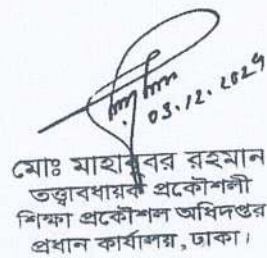 03.12.2024
মোঃ মাহাবুবর রহমান
তত্ত্বাবধায়ক প্রকৌশলী
শিক্ষা প্রকৌশল অধিদপ্তর
প্রধান কার্যালয়, ঢাকা।